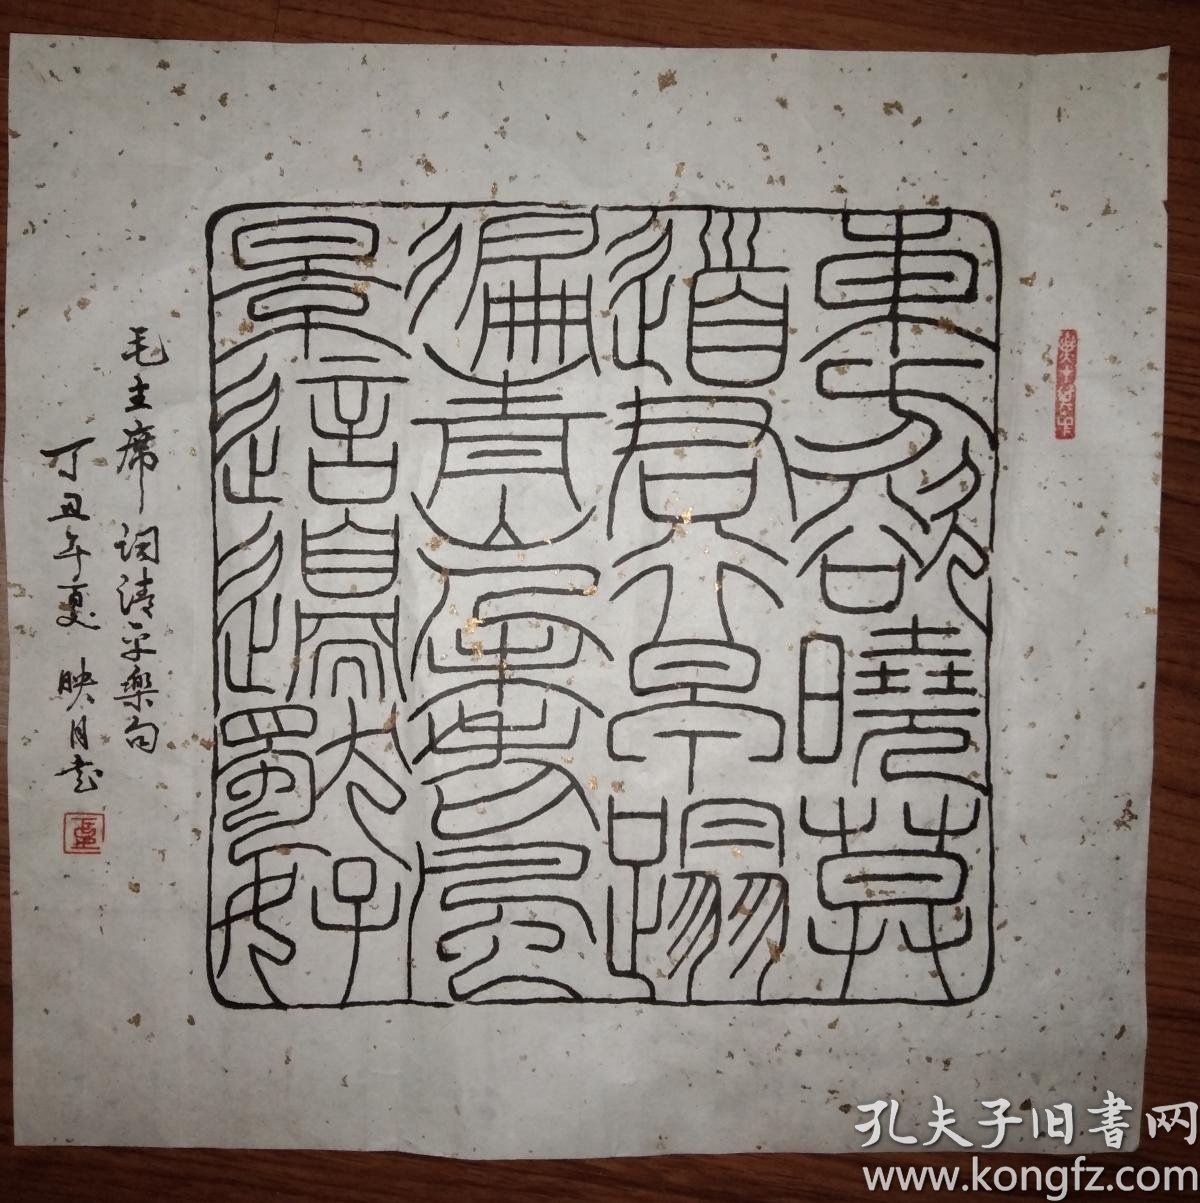 東方欲曉莫
道君行早踏
遍青山人未老風
景這邊獨好
毛主席词清平樂句
丁丑年夏 映月書
孔夫子旧書网
www.kongfz.com